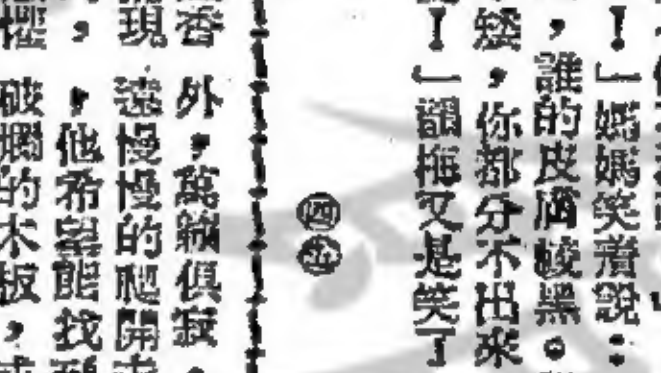 ！」媽媽笑着說：
，誰的皮膚較黑。
矮，你都分不出來
！」韻梅又是笑了
四
香
外，萬籟俱寂。
現
遠慢慢的爬開
，
，他希望能找
破爛的木板，